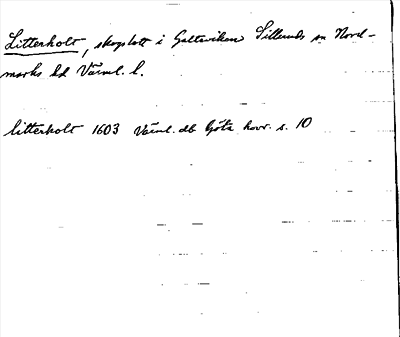 Litterholt, skogslott i Galteviken Silleruds sn Nord-
marks hd Värml. l.
litterholt 1603 Värml. db Göta hovr. s. 10